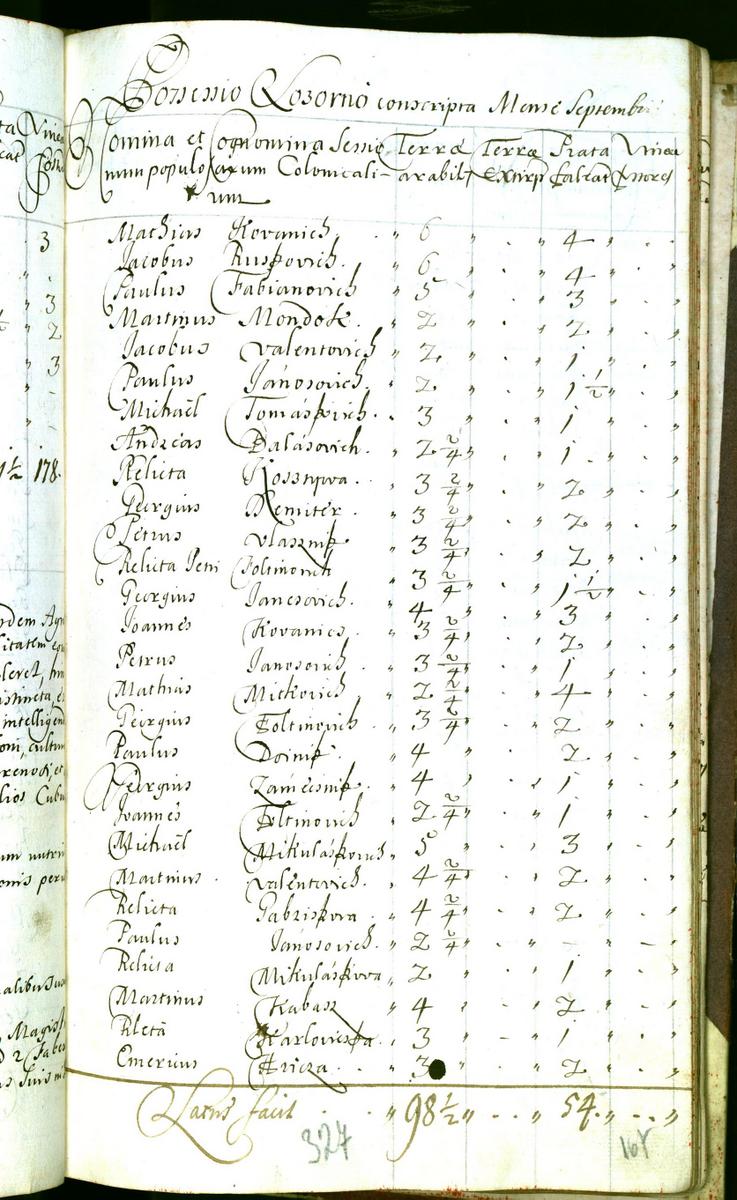 Possessio Losorno conscripta Mense Septembri
Nomina et Cognomina Sessio- Terræ Terræ Prata Vinea
num populosarum Colonicali- arabil Extirp falcat fosores
um
Mathias Kovanich " 6 " . " 4 " . "
Jacobus Ruskovich " 6 " . " 4 " . "
Paulus Fabianovich " 5 " . " 3 " . "
Martinus Mondok " 2 " . " 2 " . "
Jacobus Valentovich " 2 " . " 1 " . "
Paulus Jánosovich " 2 " . " 1 1/2 " . "
Michaël Tomáskovich " 3 " . " 1 " . "
Andreas Balásovich " 2 2/4 " . " 1 " . "
Relicta Kossypva " 3 2/4 " . " 2 " . "
Georgius Remiter " 3 2/4 " . " 2 " . "
Petrus Vlasznik " 3 2/4 " . " 2 " . "
Relicta Petri Foltinovich " 3 2/4 " . " 1 1/2 " . "
Georgius Janesovich " 4 " . " 3 " . "
Joannes Kovanics " 3 2/4 " . " 2 " . "
Petrus Janosovich " 3 2/4 " . " 1 " . "
Mathias Mitkovich " 2 2/4 " . " 4 " . "
Georgius Foltinovich " 3 2/4 " . " 2 " . "
Paulus Doinik " 4 " . " 2 " . "
Georgius Zámecsnik " 4 " . " 1 " . "
Joannes Foltinovich " 2 2/4 " . " 1 " . "
Michaël Mikuláskovich " 5 " . " 3 " . "
Martinus Valentovich " 4 2/4 " . " 2 " . "
Relicta Gabriskova " 4 2/4 " . " 2 " . "
Paulus Jánosovich " 2 2/4 " . " - " - "
Relicta Mikuláskova " 2 " . " 1 " . "
Martinus Kabasz " 4 " . " 2 " . "
Rleta Karloviczka " 3 " - " 1 " . "
Emericus Hricza " 3 " . " 2 " . "
Latus facit " 98 1/2 " . " 54 " . "
324